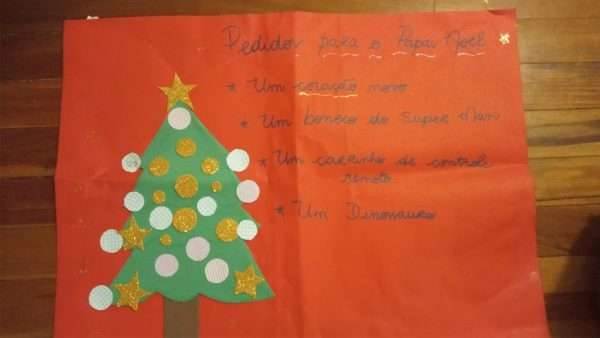 Pedidos para o Papai Noel
* Um coração novo
* Um boneco do Super Man
* Um carrinho de controle
remoto
* Um Dinossauro